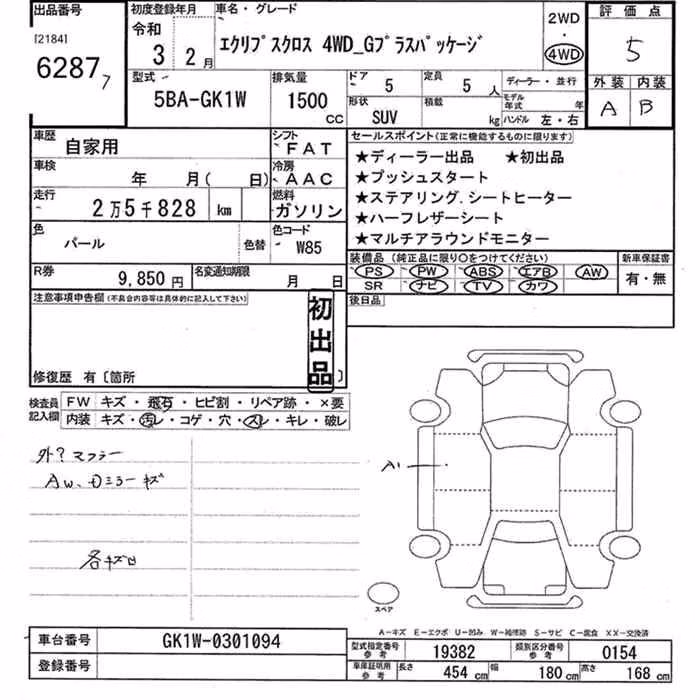 出品番号
[2184]
6287 7
初度登録年月
令和
3 2月
車名・グレード
エクリプスクロス 4WD_Gプラスパッケージ
2WD
・
4WD
評価点
5
外装 内装
A B
型式
5BA-GK1W
排気量
1500
CC
ドア 5
定員 5 人
ディーラー・並行
形状
SUV
積載 kg
モデル年式 年
ハンドル 左・右
車歴
自家用
シフト
FAT
車検
年 月( 日)
冷房
AAC
走行
2万5千828 km
燃料
ガソリン
色
パール
色替
色コード
W85
R券
9,850円
名変通知期限
月 日
セールスポイント(正常に機能するものに限ります)
★ディーラー出品 ★初出品
★プッシュスタート
★ステアリング.シートヒーター
★ハーフレザーシート
★マルチアラウンドモニター
装備品 (純正品に限り○をつけてください)
PS PW ABS エアB AW
SR ナビ TV カワ
新車保証書
有・無
後日品
注意事項申告欄(不具合内容等は具体的に記入して下さい)
初出品
修復歴 有〔箇所 〕
検査員記入欄
FW キズ・飛石・ヒビ割・リペア跡・×要
内装 キズ・汚レ・コゲ・穴・スレ・キレ・破レ
外?マフラー
AW、Dミラーキズ
各キズ
A1
スペア
A-キズ E-エクボ U-凹み W-補修跡 S-サビ C-腐食 XX-交換済
車台番号
GK1W-0301094
登録番号
型式指定番号
参考
19382
類別区分番号
参考
0154
車庫証明用
参考
長さ 454 cm
幅 180 cm
高さ 168 cm